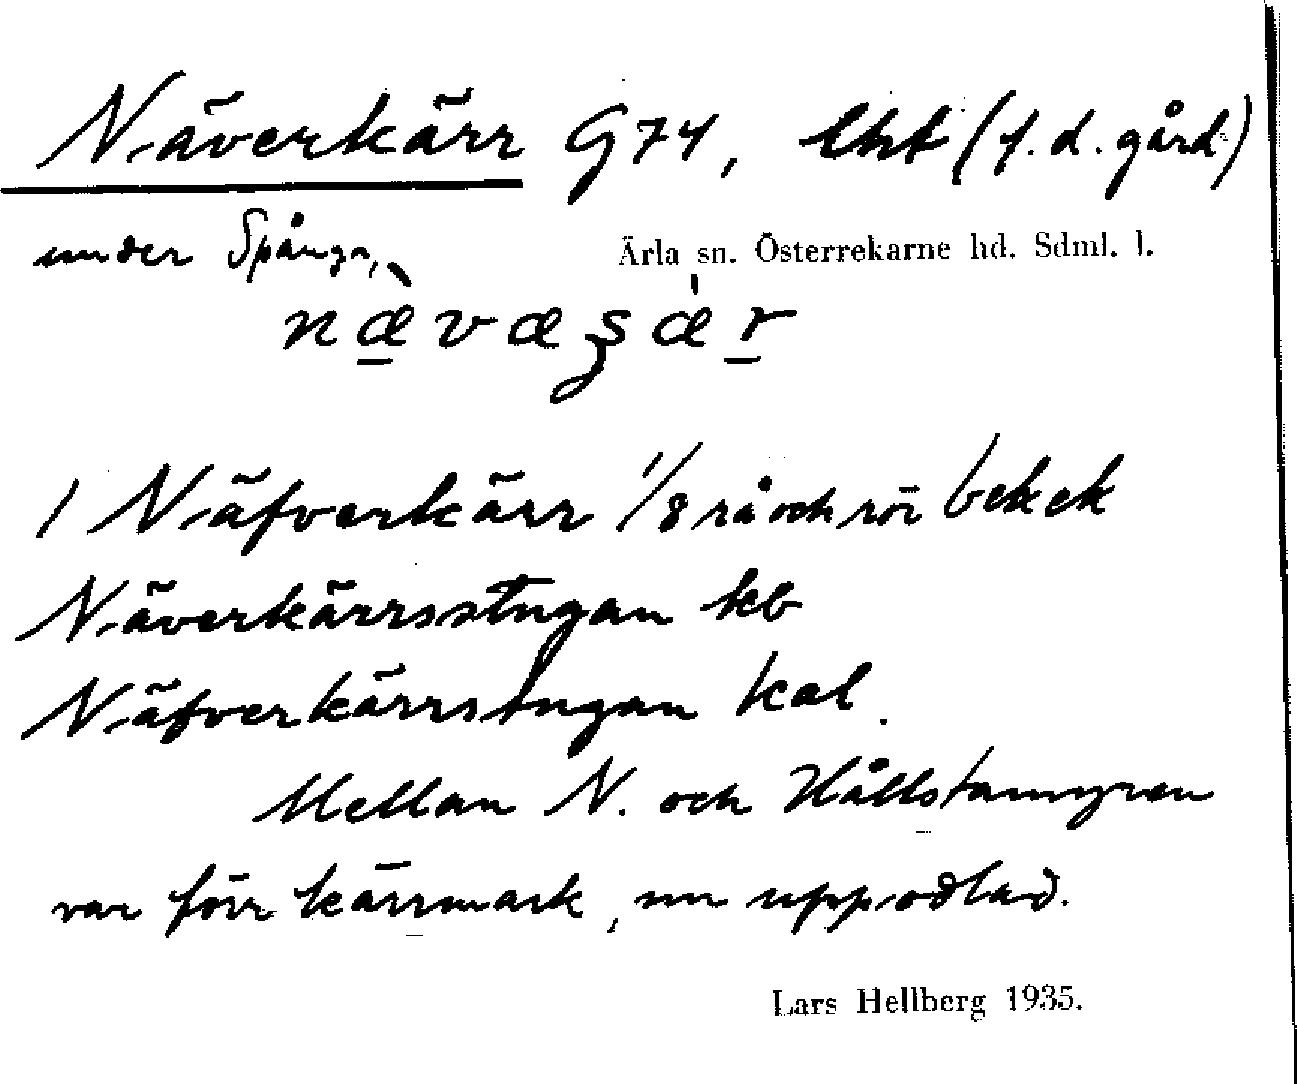 Näverkärr G74, lht (f.d. gård)
under Spånga, Ärla sn. Österrekarne hd. Sdml. l.
1 Näfverkärr 1/8 rå och rör bek ek
Näverkärrsstugan kb
Näfverkärrstugan kal.
Mellan N. och Hållstamyren
var förr kärrmark, nu uppodlad.
Lars Hellberg 1935.